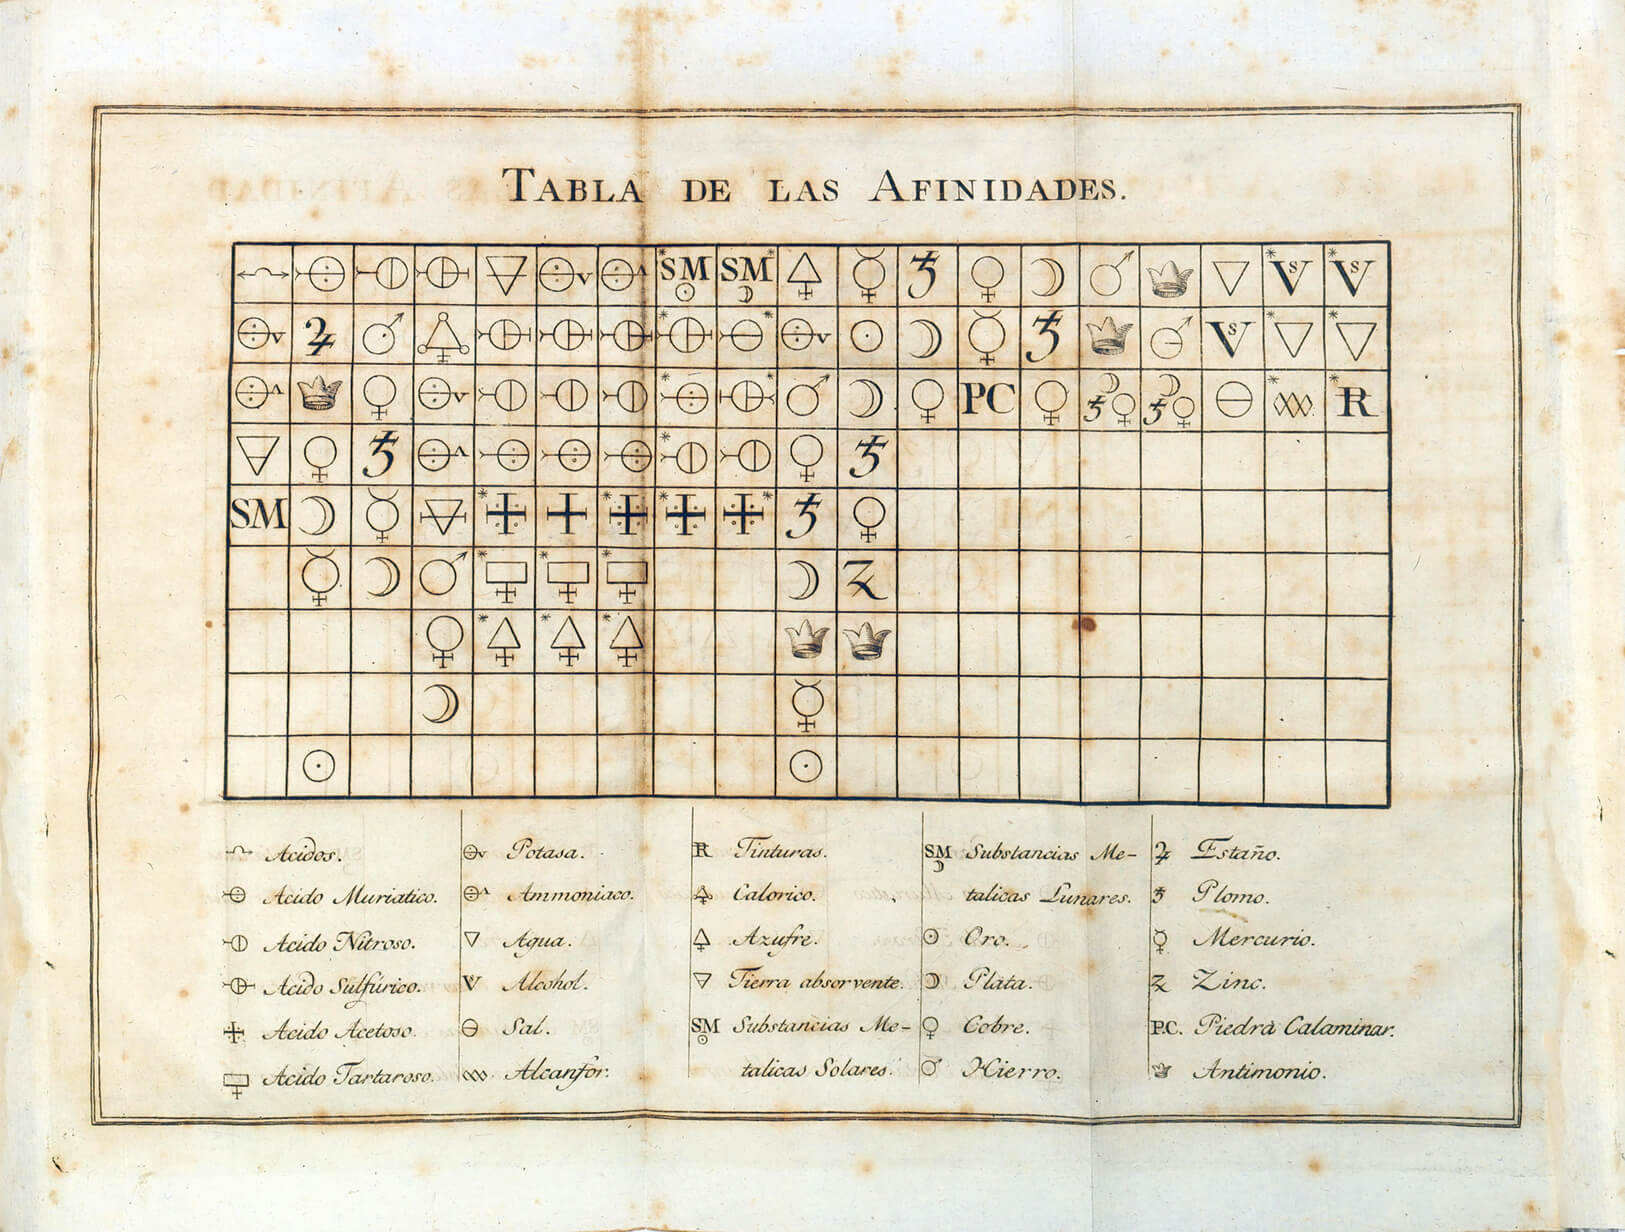 TABLA DE LAS AFINIDADES.
SM SM
V V
V
PC R
SM
Acidos.
Acido Muriatico.
Acido Nitroso.
Acido Sulfúrico.
Acido Acetoso.
Acido Tartaroso.
Potasa.
Ammoniaco.
Agua.
Alcohol.
Sal.
Alcanfor.
R Tinturas.
Calorico.
Azufre.
Tierra absorvente.
SM Substancias Me-
talicas Solares.
SM Substancias Me-
talicas Lunares.
Oro.
Plata.
Cobre.
Hierro.
Estaño.
Plomo.
Mercurio.
Zinc.
P.C. Piedra Calaminar.
Antimonio.